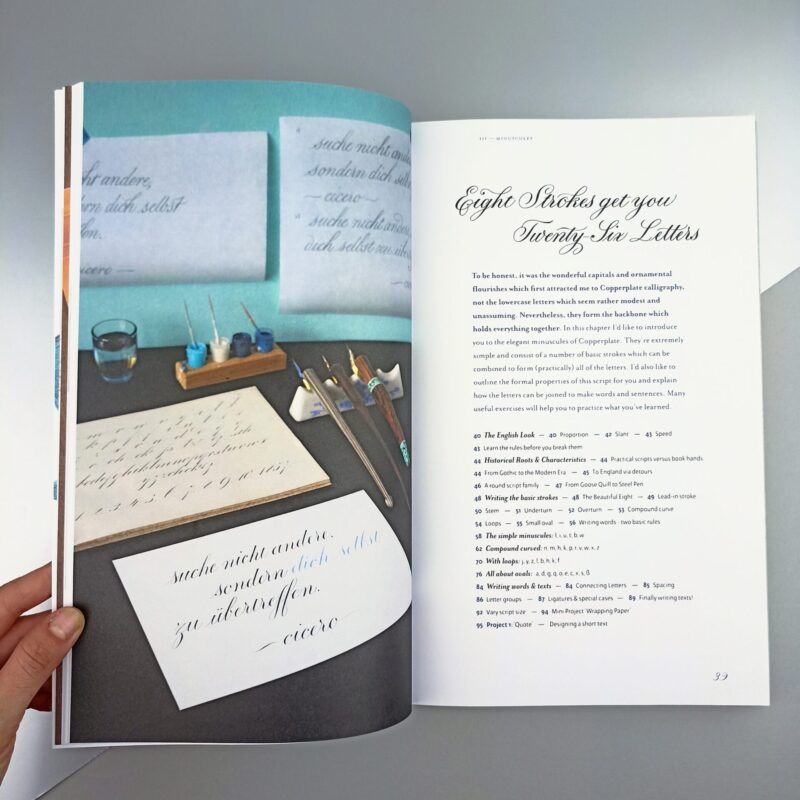 cht andere,
dern dich selbst
fen.
cicero —
" suche nicht ande
sondern dich selb
— cicero —
" suche nicht andere
dich selbst zu übe
suche nicht andere,
sondern dich selbst
zu übertreffen.
— cicero —
III — MINUSCULES
Eight Strokes get you
Twenty-Six Letters
To be honest, it was the wonderful capitals and ornamental
flourishes which first attracted me to Copperplate calligraphy,
not the lowercase letters which seem rather modest and
unassuming. Nevertheless, they form the backbone which
holds everything together. In this chapter I'd like to introduce
you to the elegant minuscules of Copperplate. They're extremely
simple and consist of a number of basic strokes which can be
combined to form (practically) all of the letters. I'd also like to
outline the formal properties of this script for you and explain
how the letters can be joined to make words and sentences. Many
useful exercises will help you to practice what you've learned.
40 The English Look — 40 Proportion — 42 Slant — 43 Speed
43 Learn the rules before you break them
44 Historical Roots & Characteristics — 44 Practical scripts versus book hands
44 From Gothic to the Modern Era — 45 To England via detours
46 A round script family — 47 From Goose Quill to Steel Pen
48 Writing the basic strokes — 48 The Beautiful Eight — 49 Lead-in stroke
50 Stem — 51 Underturn — 52 Overturn — 53 Compound curve
54 Loops — 55 Small oval — 56 Writing words - two basic rules
58 The simple minuscules: i, u, t, b, w
62 Compound curved: n, m, h, k, p, r, v, w, x, z
70 With loops: j, y, z, f, b, h, k, f
76 All about ovals: a, d, g, q, o, e, c, x, s, ß
84 Writing words & texts — 84 Connecting Letters — 85 Spacing
86 Letter groups — 87 Ligatures & special cases — 89 Finally writing texts!
92 Vary script size — 94 Mini Project 'Wrapping Paper'
95 Project 1: 'Quote' — Designing a short text
39